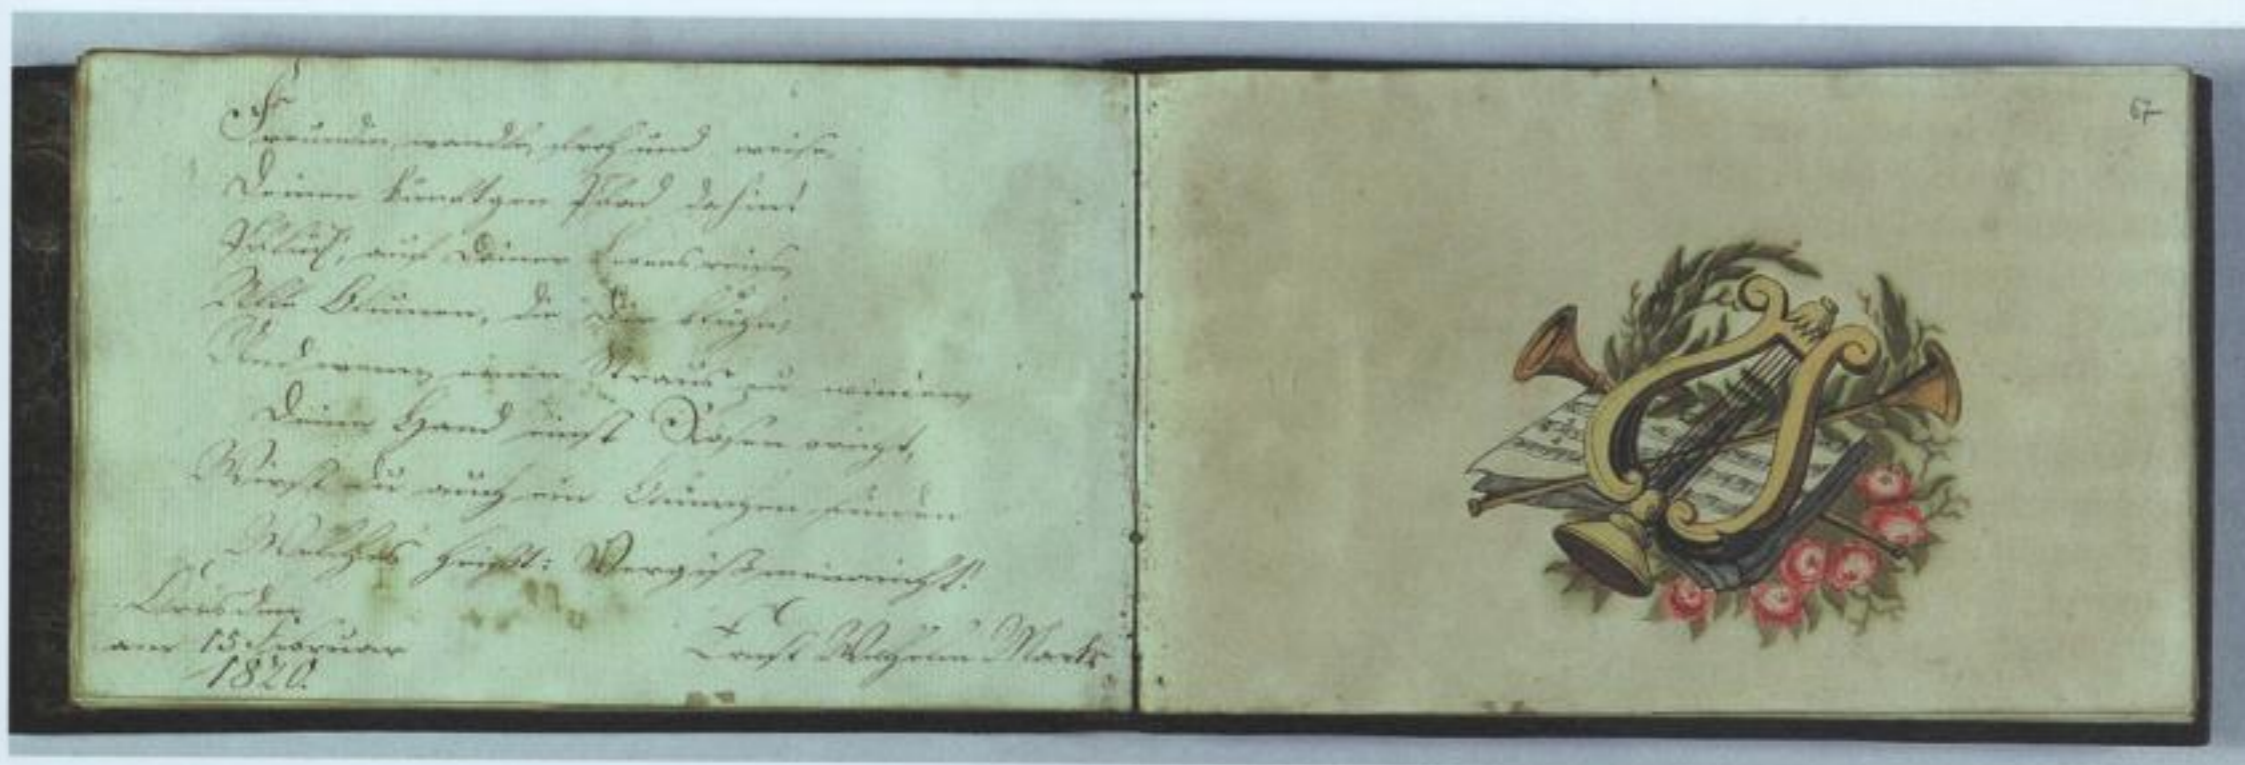 Freundin, wandle froh und weise,
Deinen künftgen Pfad dahin!
Pflück', auf Deiner Lebensreise,
Alle Blumen, die Dir blühn;
Und wenn, einen Strauß zu winden,
Deine Hand einst Rosen bricht,
Wirst du auch ein Blümchen finden
Welches heißt: Vergißmeinnicht!
Dresden
am 15 Februar
1820.
Ernst Wilhelm
67